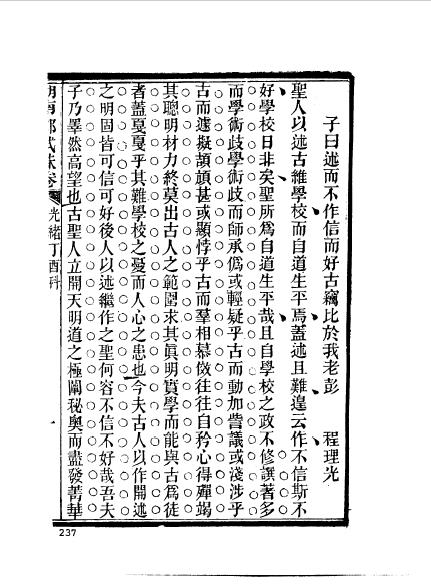 子曰述而不作信而好古竊比於我老彭　程理光
聖人以述古維學校而自道生平焉蓋述且難遑云作不信斯不
好學校日非矣聖所爲自道生平哉且自學校之政不修譔著多
而學術歧學術歧而師承僞或輕疑乎古而動加訾議或淺涉乎
古而遽擬頡頏甚或顯悖乎古而羣相慕傚往往自矜心得殫竭
其聰明材力終莫出古人之範圍求其眞明實學而能與古爲徒
者蓋戛戛乎其難學校之憂而人心之患也今夫古人以作開述
之明固皆可信可好後人以述繼作之聖何容不信不好哉吾夫
子乃睪然高望也古聖人立開天明道之極闡秘奥而盡發菁華
湖南鄉試硃卷 光緒丁酉科 一
237